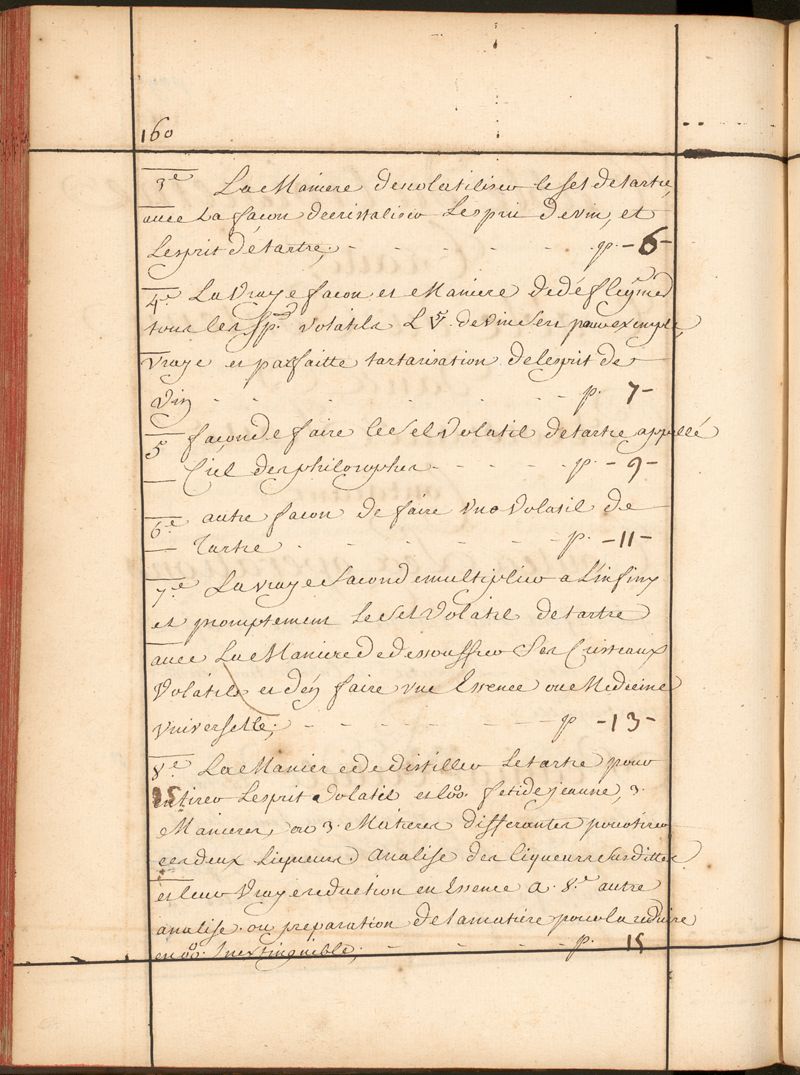 160
3e La Maniere de volatiliser le sel de tartre,
avec La façon de cristaliser Lesprit de vin, et
Lesprit de tartre; - - - - - - p. - 6 -
4e. La Vraye façon et Maniere de déflegmer
tous les volatils L de vin Servi pour exemple,
Vraye et parfaitte tartarisation de lesprit de
Vin - - - - - - p. 7 -
5 façon de faire le Sel Volatil de tartre appellé
Ciel des philosophes - - - - p. - 9 -
6e autre façon de faire vn Volatil de
Tartre - - - - - p. - 11 -
7e La vraye façon de multiplier a L'infiny
et promptement Le Sel Volatil de tartre
avec La Maniere de dessouffrer Ses Cristeaux
Volatils et d'en faire vne Essence ou Medecine
Vniverselle; - - - - - p - 13 -
8e. La Maniere de distiller Le tartre pour
en tirer Lesprit Volatil et fetide jeaune, 3.
Manieres, ou 3. Matieres differantes pour tirer
ces deux Liqueurs. Analise des liqueurs Susdittes
et leur Vraye reduction en Essence a. 8.e autre
analise. ou preparation de la matiére pour la reduire
en Inextinguible; - - - - p. 15